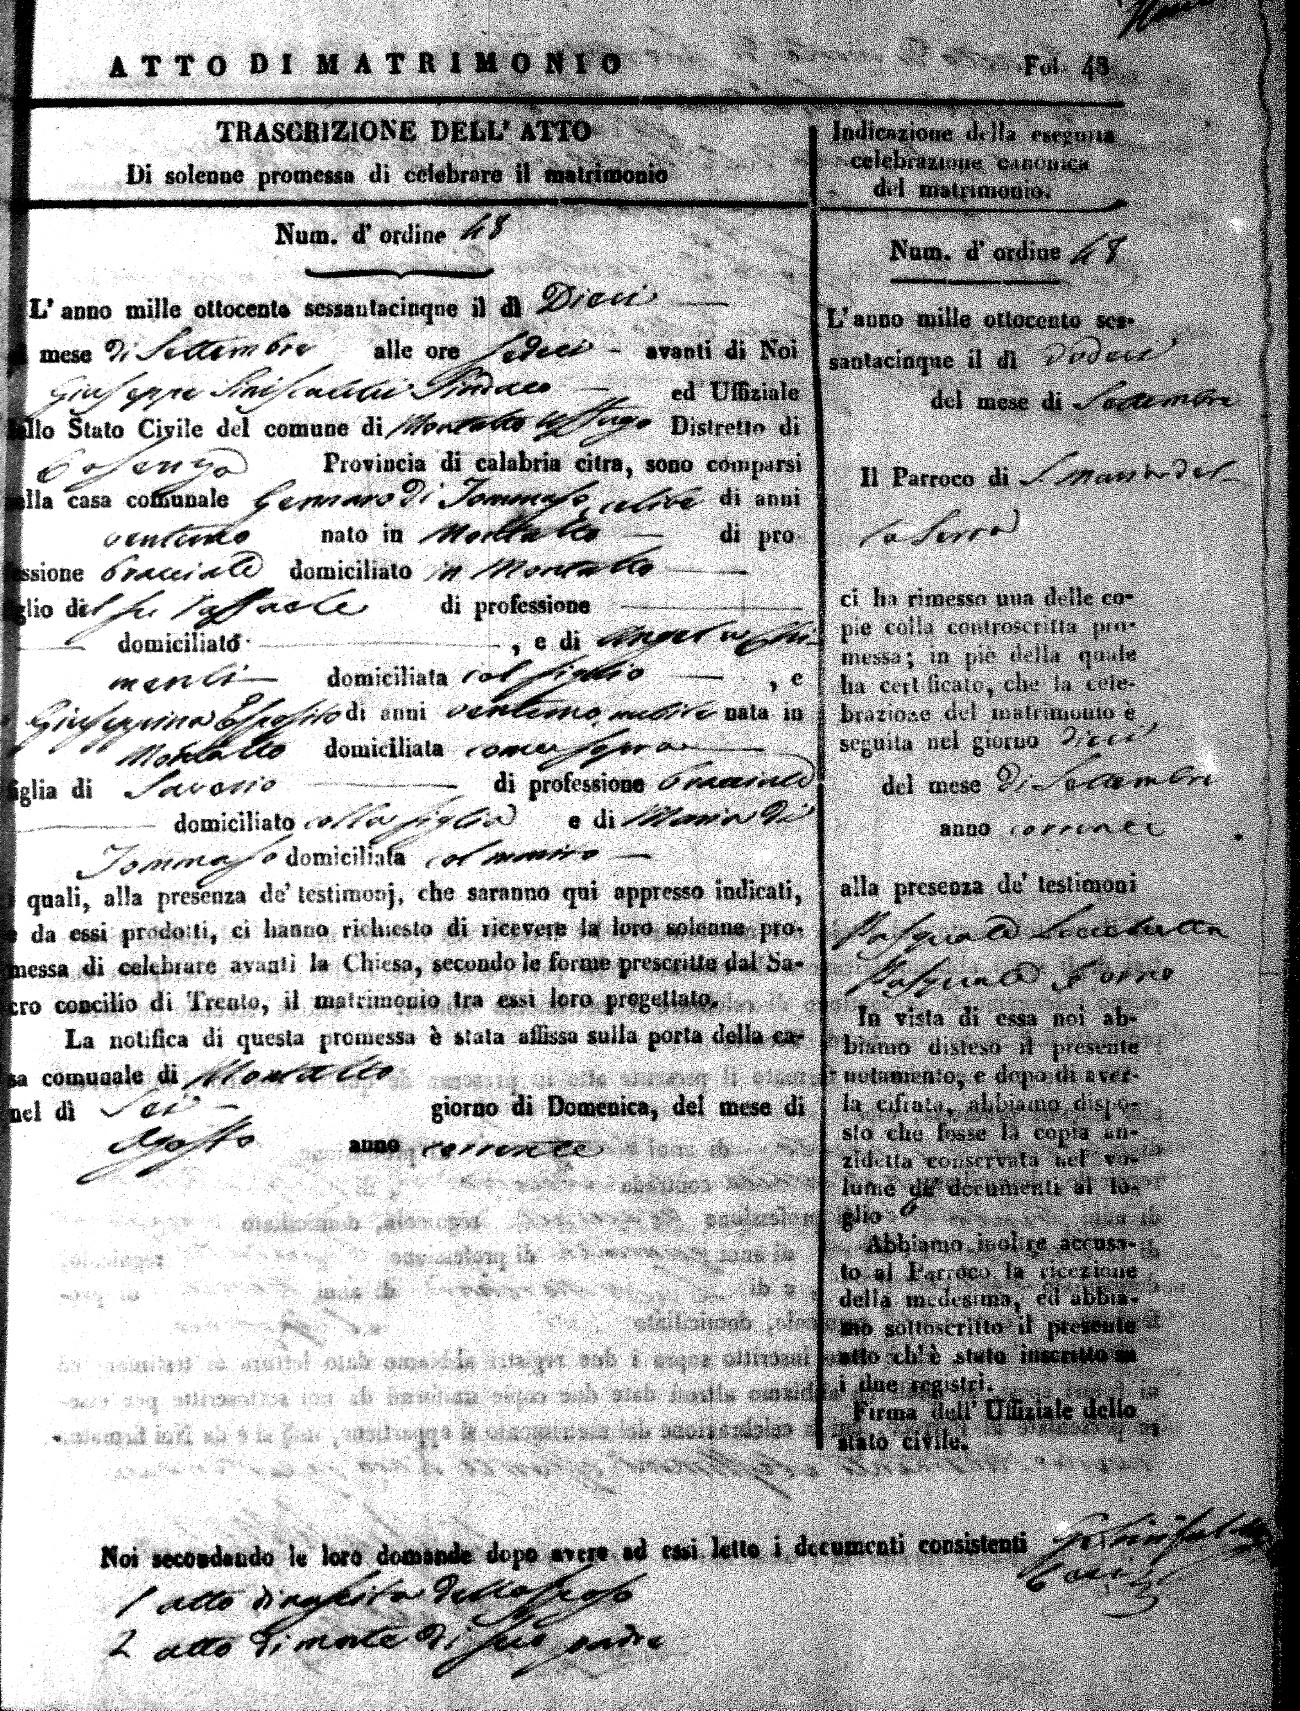 ATTO DI MATRIMONIO
Fol. 48
TRASCRIZIONE DELL' ATTO
Di solenne promessa di celebrare il matrimonio
Num. d' ordine 48
L' anno mille ottocento sessantacinque il dì Dieci
mese di Settembre alle ore sedeci avanti di Noi
Giuseppe Siniscalchi Sindaco ed Uffiziale
dello Stato Civile del comune di Montalto Uffugo Distretto di
Cosenza Provincia di calabria citra, sono comparsi
nella casa comunale Gennaro di Tommaso, celibe di anni
ventuno nato in Montalto di pro
fessione bracciale domiciliato in Montalto
figlio del fu Raffaele di professione
domiciliato , e di Angela Chi-
menti domiciliata col figlio , e
Giuseppina Esposito di anni ventuno, nubile nata in
Montalto domiciliata come sopra
figlia di Saverio di professione bracciale
domiciliato colla figlia e di Maria di
Tommaso domiciliata col marito
i quali, alla presenza de' testimonj, che saranno qui appresso indicati,
e da essi prodotti, ci hanno richiesto di ricevere la loro solenne pro-
messa di celebrare avanti la Chiesa, secondo le forme prescritte dal Sa-
cro concilio di Trento, il matrimonio tra essi loro progettato.
La notifica di questa promessa è stata affissa sulla porta della ca-
sa comunale di Montalto
nel dì Sei giorno di Domenica, del mese di
Agosto anno corrente
Noi secondando le loro domande dopo avere ad essi letto i documenti consistenti
1 atto di nascita dello sposo
2 atto di morte di suo padre
Indicazione della eseguita
celebrazione canonica
del matrimonio.
Num. d' ordine 48
L' anno mille ottocento ses-
santacinque il dì dodeci
del mese di Settembre
Il Parroco di S. Maria del-
la Serra
ci ha rimesso una delle co-
pie colla controscritta pro-
messa; in piè della quale
ha certificato, che la cele-
brazione del matrimonio è
seguita nel giorno dieci
del mese di Settembre
anno corrente
alla presenza de' testimoni
Pasquale
Pasquale
In vista di essa noi ab-
biamo disteso il presente
notamento, e dopo di aver-
la cifrata, abbiamo dispo-
sto che fosse la copia an-
zidetta conservata nel vo-
lume de' documenti al fo-
glio
Abbiamo inoltre accusa-
to al Parroco la ricezione
della medesima, ed abbia-
mo sottoscritto il presente
atto ch'è stato inscritto su
i due registri.
Firma dell' Uffiziale dello
stato civile.